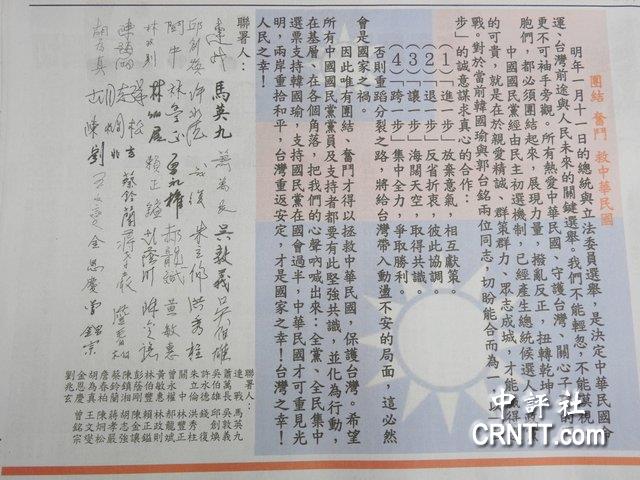 團結 奮鬥 救中華民國
明年一月十一日的總統與立法委員選舉,是決定中華民國
運、台灣前途與人民未來的關鍵選舉。我們不能輕忽,不能漠視
更不可袖手旁觀。所有熱愛中華民國、守護台灣、關心子
胞們,都必須團結起來,展現力量,撥亂反正,扭轉乾坤
中國國民黨經由民主初選機制,已經產生總統候選人
的可貴,就是在於親愛精誠、群策群力、眾志成城,才能
戰。對於當前韓國瑜與郭台銘兩位同志,切盼能合而為一,以
步」的誠意謀求真心的合作:
(1)「進一步」放棄意氣,相互獻策。
(2)「退一步」反省折衷,彼此協調。
(3)「讓一步」海闊天空,取得共識。
(4)「跨一步」集中全力,爭取勝利。
否則重蹈分裂之路,將給台灣帶入動盪不安的局面,這必然
會是國家之禍。
因此唯有團結、奮鬥才得以拯救中華民國,保護台灣。希望
所有中國國民黨黨員及支持者都要有此堅強共識,並化為行動,
在基層、在各個角落,把我們的心聲吶喊出來:全黨、全民集中
選票支持韓國瑜,支持國民黨在國會過半,中華民國才可重見光
明,兩岸重拾和平,台灣重返安定,才是國家之幸!台灣之幸!
人民之幸!
聯署人:
連戰 馬英九 蕭萬長 吳敦義 吳伯雄
邱創煥 許水德 錢復 朱立倫 洪秀柱
關中 林豐正 曾永權 郝龍斌 黃敏惠
林政則 林伯豐 賴正鎰 彭蔭剛 陳金讓
陳鎮湘 胡志強 蔡鈴蘭 蔣孝嚴 詹春柏
胡為真 陳炯松 劉兆玄 王文燮 金恩慶 曾銘宗
聯署人:
連 戰 馬英九
蕭萬長 吳敦義
吳伯雄 邱創煥
許水德 錢 復
朱立倫 洪秀柱
關 中 林豐正
曾永權 郝龍斌
黃敏惠 林政則
林伯豐 賴正鎰
彭蔭剛 陳金讓
陳鎮湘 胡志強
蔡鈴蘭 蔣孝嚴
詹春柏 陳炯松
胡為真 王文燮
金恩慶 曾銘宗
劉兆玄
中評社
CRNTT.com